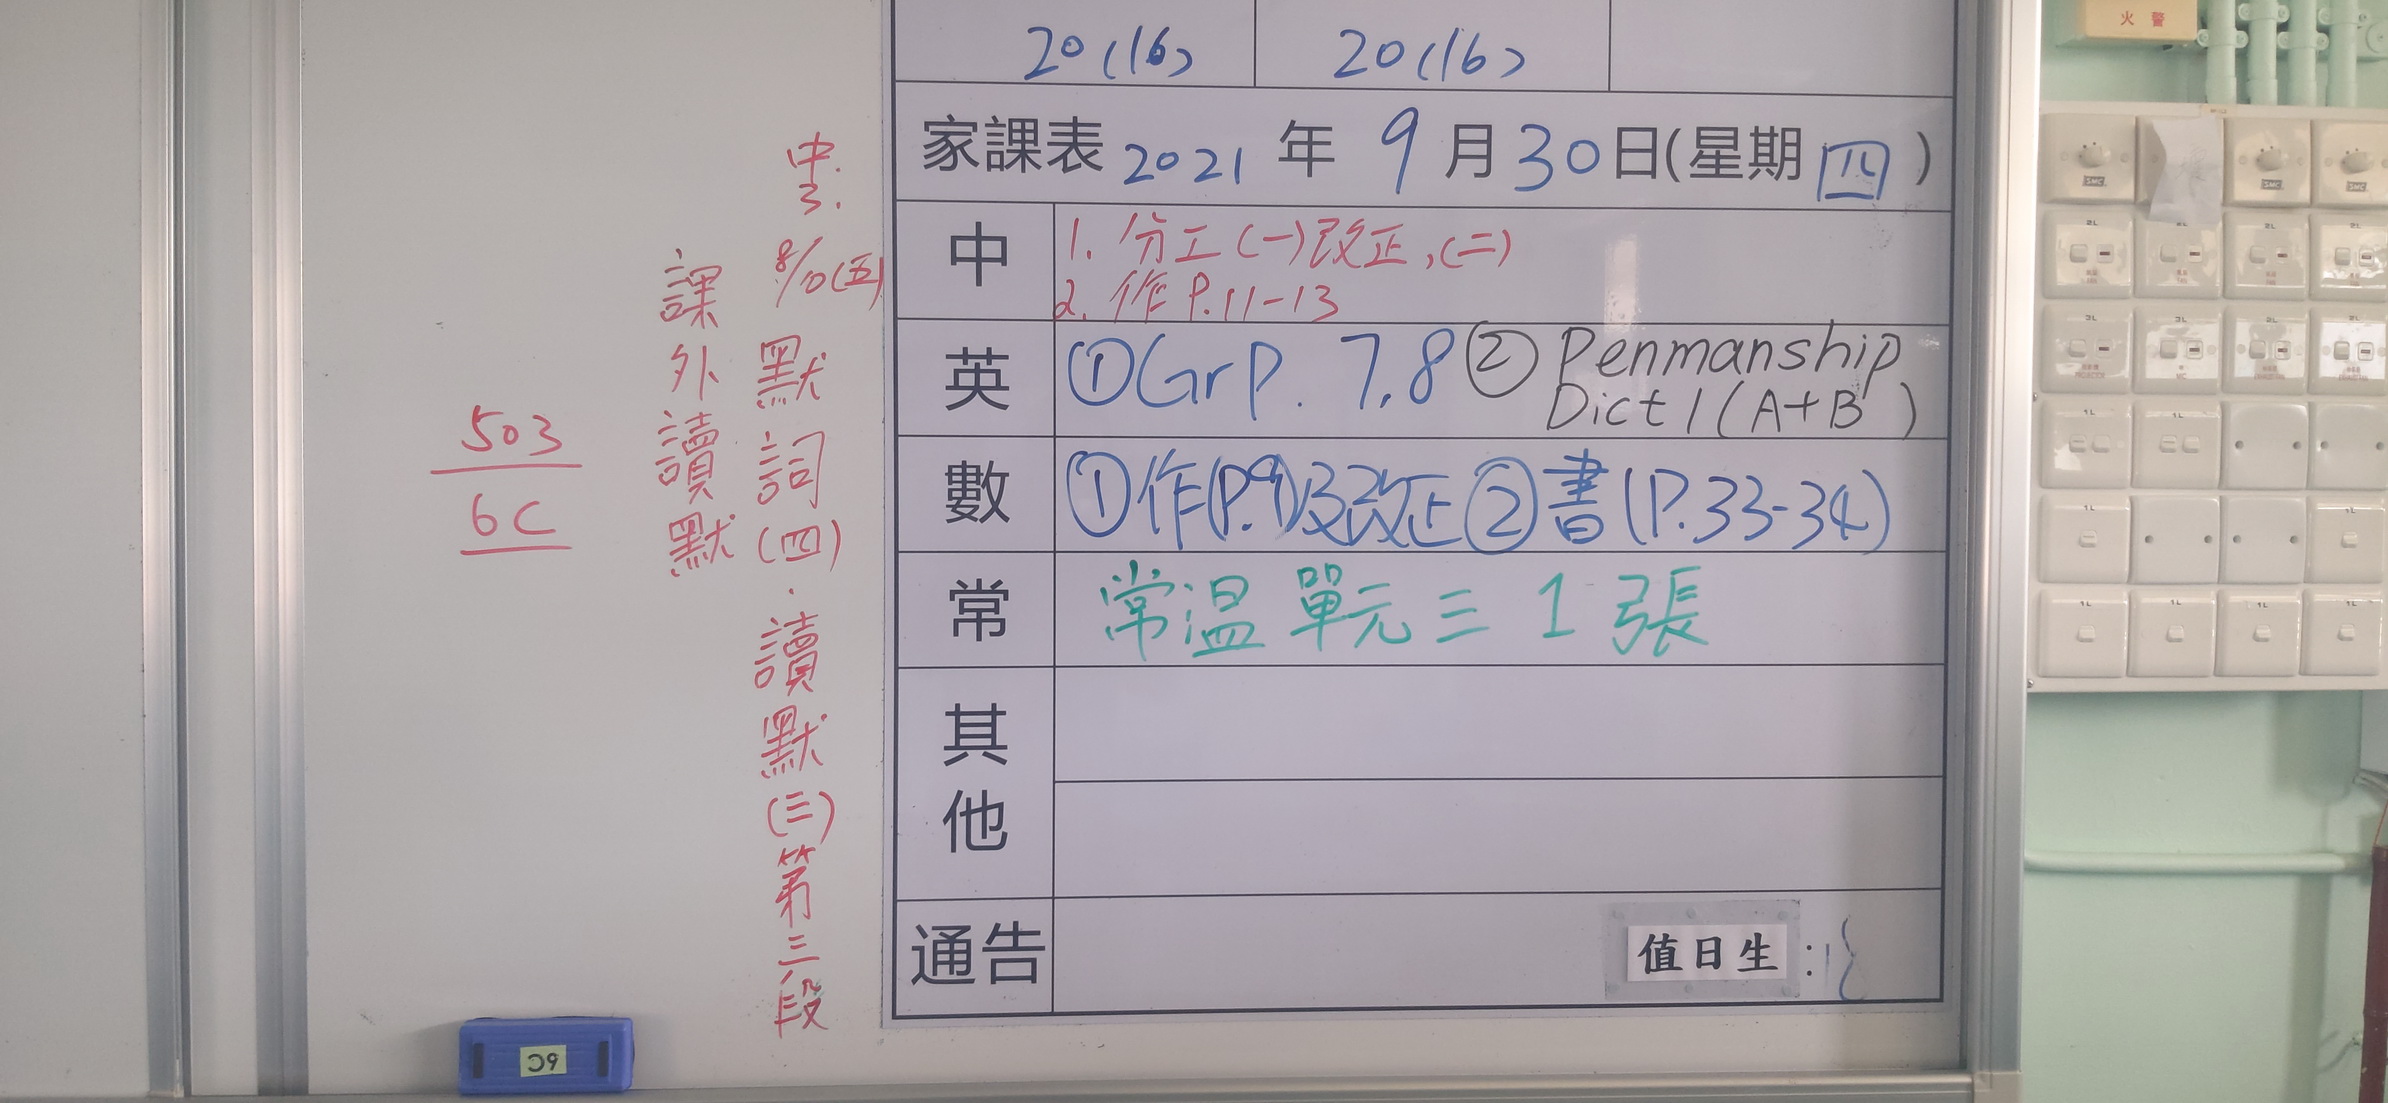 20(16) 20(16)
家課表 2021 年 9 月 30 日(星期四)
中 1. 分工(一)改正,(二)
2. 作 P.11-13
英 ①Gr P. 7,8 ② Penmanship
Dict 1 (A+B)
數 ①作(P.9)及改正②書(P.33-34)
常 常溫單元三 1 張
其他
通告
值日生:
中.
3.
8/10(五)
默詞(四).讀默(三)第三段
課外讀默
503
6C
6C
火警